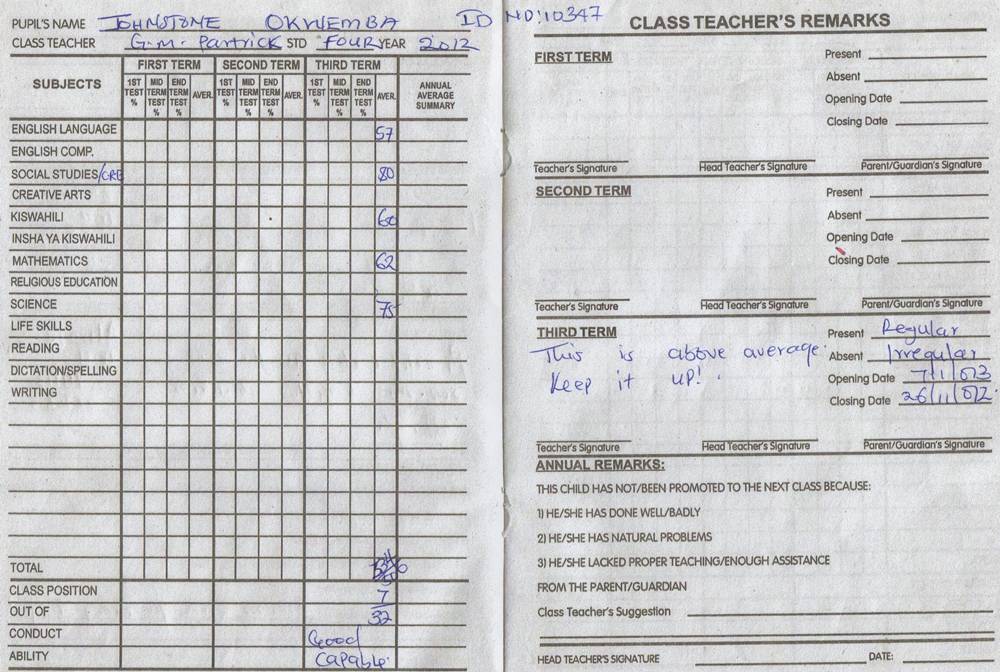 PUPIL'S NAME JOHNSTONE OKWEMBA ID NO:10347
CLASS TEACHER G.M. Partrick STD FOUR YEAR 2012
SUBJECTS FIRST TERM SECOND TERM THIRD TERM ANNUAL AVERAGE SUMMARY
1ST TEST % MID TERM TEST % END TERM TEST % AVER. 1ST TEST % MID TERM TEST % END TERM TEST % AVER. 1ST TEST % MID TERM TEST % END TERM TEST % AVER.
ENGLISH LANGUAGE 57
ENGLISH COMP.
SOCIAL STUDIES/CRE 80
CREATIVE ARTS
KISWAHILI 60
INSHA YA KISWAHILI
MATHEMATICS 62
RELIGIOUS EDUCATION
SCIENCE 75
LIFE SKILLS
READING
DICTATION/SPELLING
WRITING
TOTAL
CLASS POSITION 7
OUT OF 32
CONDUCT Good
ABILITY Capable.
CLASS TEACHER'S REMARKS
FIRST TERM
Present
Absent
Opening Date
Closing Date
Teacher's Signature Head Teacher's Signature Parent/Guardian's Signature
SECOND TERM
Present
Absent
Opening Date
Closing Date
Teacher's Signature Head Teacher's Signature Parent/Guardian's Signature
THIRD TERM
This is above average.
Keep it up!.
Present Regular
Absent Irregular
Opening Date 7/1/013
Closing Date 26/11/012.
Teacher's Signature Head Teacher's Signature Parent/Guardian's Signature
ANNUAL REMARKS:
THIS CHILD HAS NOT/BEEN PROMOTED TO THE NEXT CLASS BECAUSE:
1) HE/SHE HAS DONE WELL/BADLY
2) HE/SHE HAS NATURAL PROBLEMS
3) HE/SHE LACKED PROPER TEACHING/ENOUGH ASSISTANCE
FROM THE PARENT/GUARDIAN
Class Teacher's Suggestion
HEAD TEACHER'S SIGNATURE DATE: